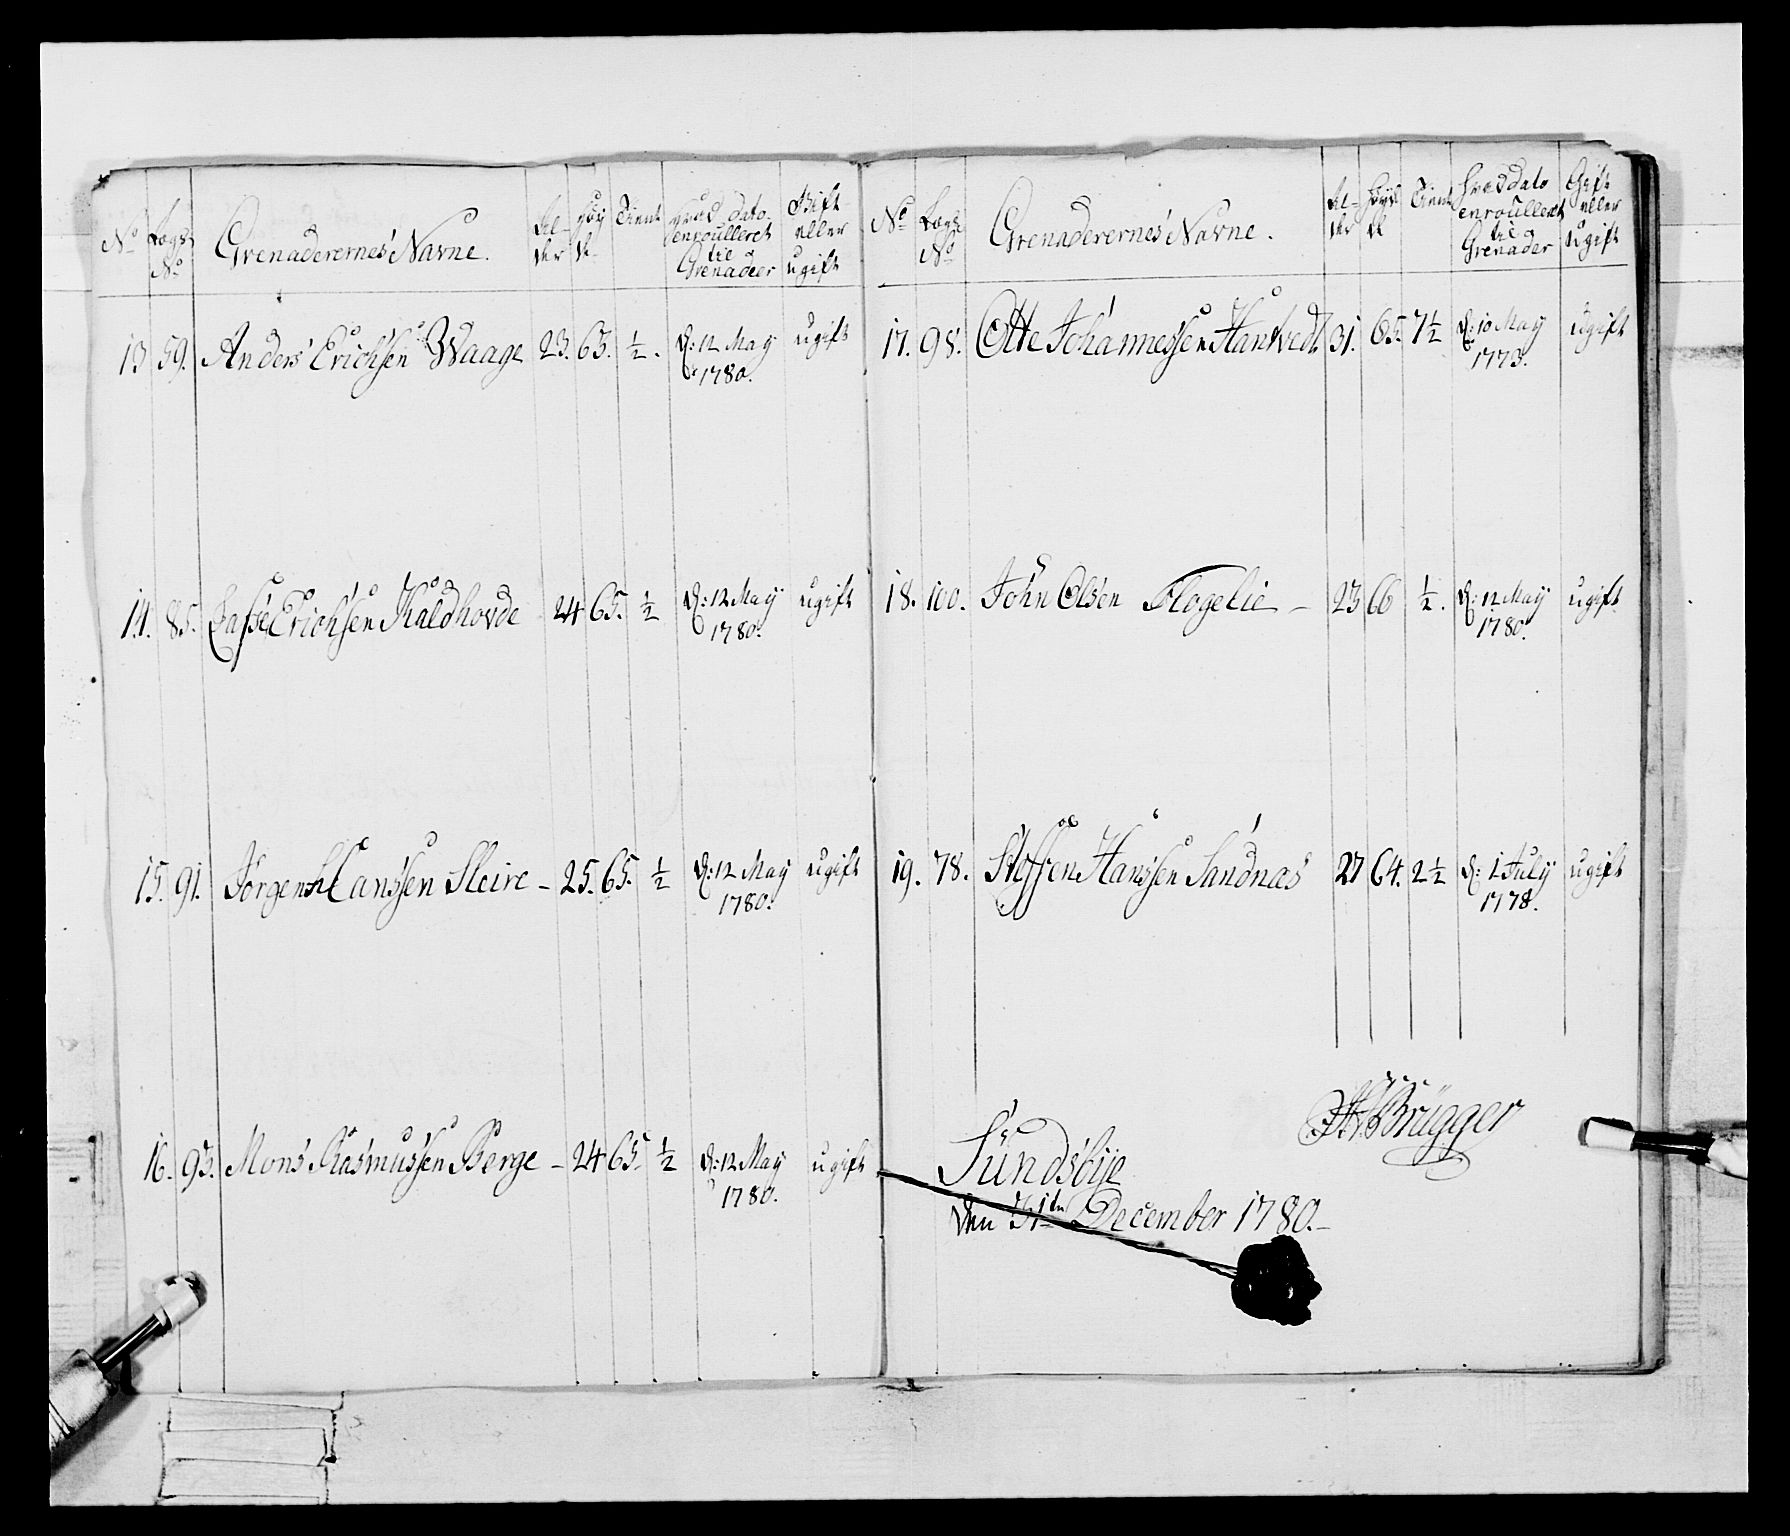 No Lægs No Grenaderernes Navne. Alder Høyde Tient hvad dato enroulleret til Grenadeer Gift eller ugift
13 59. Anders Erichsen Waage 23. 65. ½. d: 12 May 1780. ugift
14. 85. Lasse Erichsen Kaldhovde 24 65. ½ d: 12 May 1780. ugift
15. 91. Jørgen Hanssen Sleire - 25. 65. ½ d: 12 May 1780. ugift
16. 93. Mons Rasmussen Berge - 24 65. ½ d: 12 May 1780. ugift
No Lægs No Grenaderernes Navne. Alder Høyde Tient hvad dato enroulleret til Grenader Gift eller ugift
17. 98. Otte Johannessen Hantvedt 31. 65. 7½ d: 10 May 1773. ugift
18. 100. John Olsen Flogelie - 23 66 ½. d: 12 May 1780. ugift
19. 78. Steffen Hanssen Sandnæs 27 64. 2½ d: 1 July 1778. ugift
Brügger
Sundsbye
den 31te December 1780.-